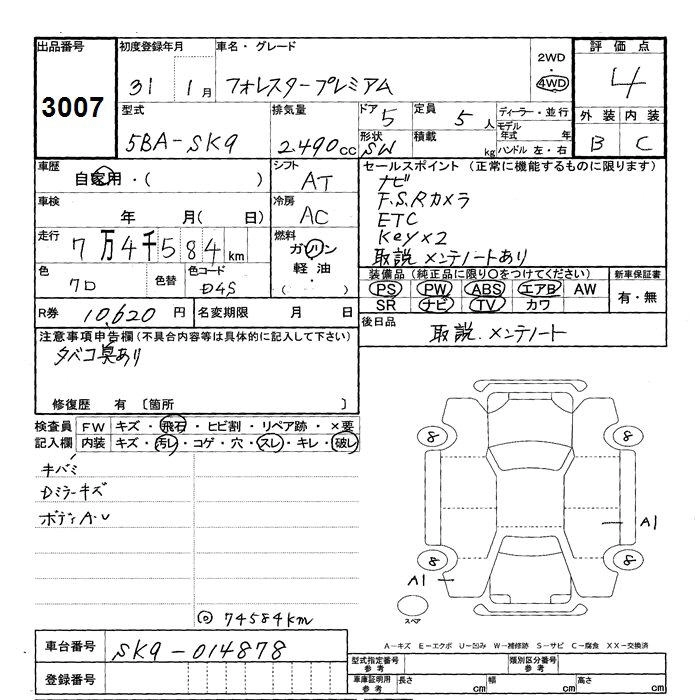 出品番号 初度登録年月 車名・グレード 評価点
3007 31 1月 フォレスタープレミアム 2WD 4WD 4
型式 排気量 ドア 5 定員 5人 ディーラー・並行 外装 内装
5BA-SK9 2.490cc 形状 SW 積載 kg モデル年式 年 ハンドル 左・右 B C
車歴 自家用・( ) シフト AT セールスポイント (正常に機能するものに限ります)
ナビ
車検 年 月( 日) 冷房 AC F.S.Rカメラ
ETC
走行 7万4千584km 燃料 ガソリン 軽油・( ) Key×2
取説 メンテノートあり
色 7D 色替 色コード D4S 装備品 (純正品に限り○をつけてください) 新車保証書
PS PW ABS エアB AW 有・無
SR ナビ TV カワ
R券 10,620円 名変期限 月 日 後日品 取説.メンテノート
注意事項申告欄 (不具合内容等は具体的に記入して下さい)
タバコ臭あり
修復歴 有 〔箇所 〕
検査員 FW キズ・飛石・ヒビ割・リペア跡・×要
記入欄 内装 キズ・汚レ・コゲ・穴・スレ・キレ・破レ
8 8
キバミ
Dミラーキズ
ボディA.U
A1
8 8
A1
スペア
◎ 74584km
A−キズ E−エクボ U−凹み W−補修跡 S−サビ C−腐食 XX−交換済
車台番号 SK9-014878
型式指定番号 参考 類別区分番号 参考
登録番号 車庫証明用 参考 長さ cm 幅 cm 高さ cm